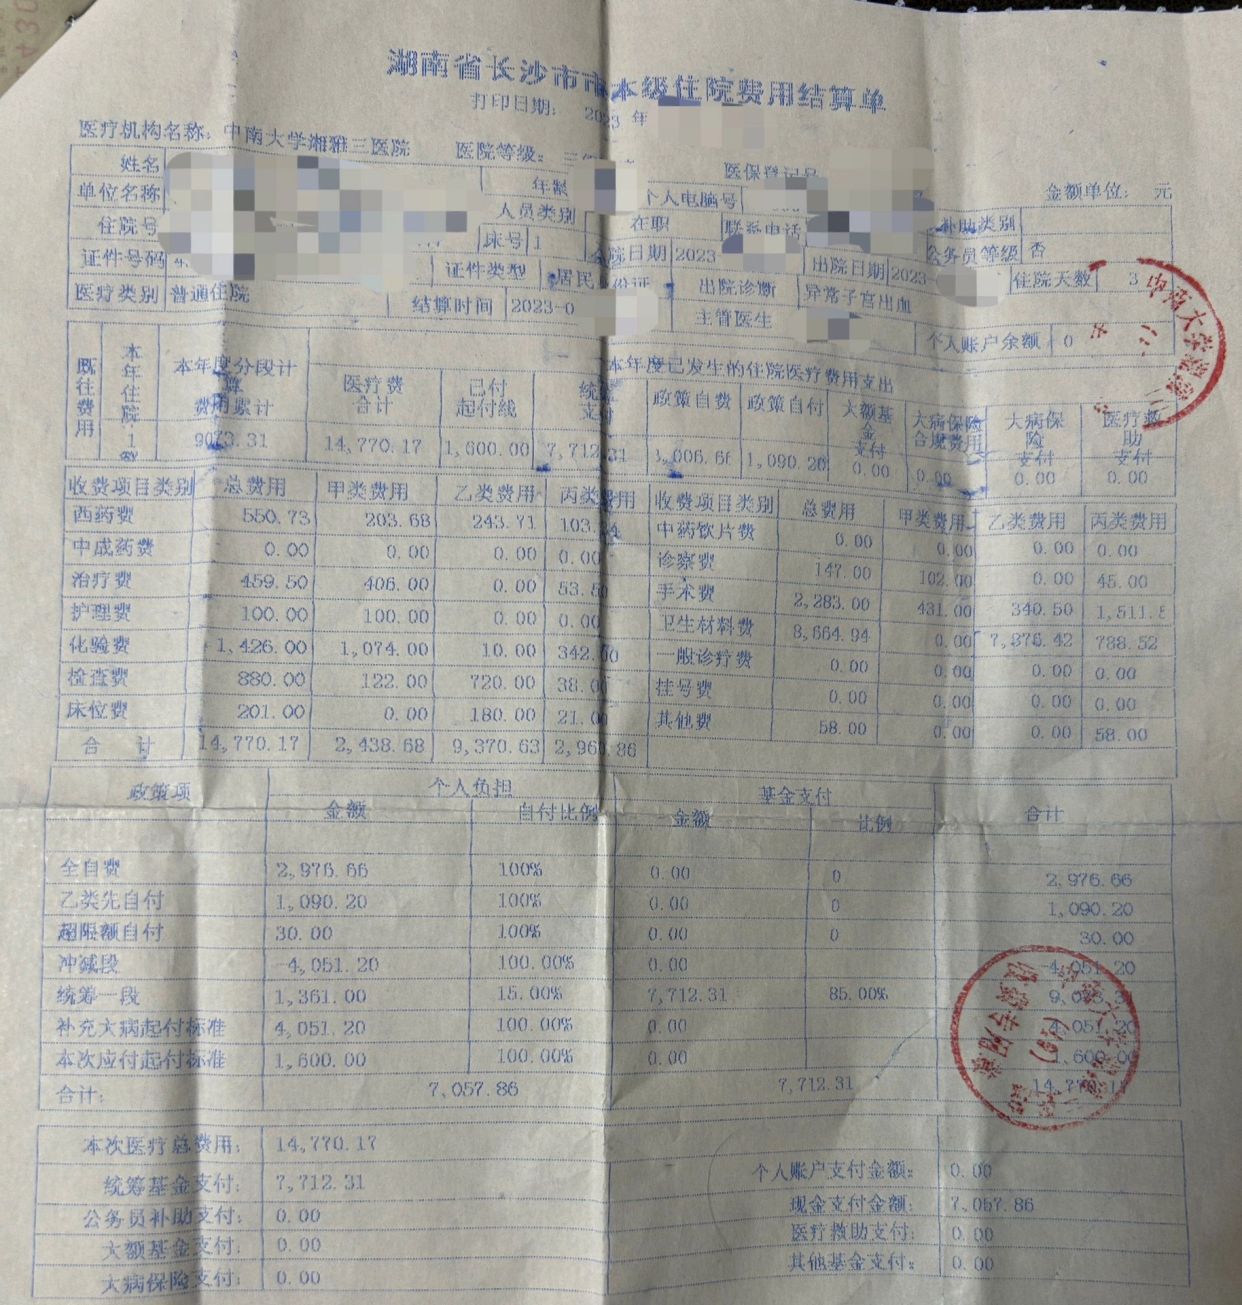 湖南省长沙市市本级住院费用结算单
打印日期： 2023 年
医疗机构名称：中南大学湘雅三医院 医院等级：三 医保登记号 金额单位： 元
姓名 年龄 个人电脑号
单位名称 人员类别 在职 联系电话 补助类别
住院号 床号 1 入院日期 2023 出院日期 2023 公务员等级 否
证件号码 证件类型 居民 份证 出院诊断 异常子宫出血 住院天数 3
医疗类别 普通住院 结算时间 2023-0 主管医生 个人账户余额 0
既往费用 本年住院 1 本年度分段计算费用累计 9073.31
本年度已发生的住院医疗费用支出
医疗费合计 已付起付线 统筹支付 政策自费 政策自付 大额基金支付 大病保险合规费用 大病保险支付 医疗救助支付
14,770.17 1,600.00 7,712.31 3,006.66 1,090.20 0.00 0.00 0.00 0.00
收费项目类别 总费用 甲类费用 乙类费用 丙类费用 收费项目类别 总费用 甲类费用 乙类费用 丙类费用
西药费 550.73 203.68 243.71 103. 4 中药饮片费 0.00 0.00 0.00 0.00
中成药费 0.00 0.00 0.00 0.00 诊察费 147.00 102.00 0.00 45.00
治疗费 459.50 406.00 0.00 53.50 手术费 2,283.00 431.00 340.50 1,511.5
护理费 100.00 100.00 0.00 0.00 卫生材料费 8,664.94 0.00 7,876.42 788.52
化验费 1,426.00 1,074.00 10.00 342.00 一般诊疗费 0.00 0.00 0.00 0.00
检查费 880.00 122.00 720.00 38.00 挂号费 0.00 0.00 0.00 0.00
床位费 201.00 0.00 180.00 21.00 其他费 58.00 0.00 0.00 58.00
合 计 14,770.17 2,438.68 9,370.63 2,960.86
政策项 个人负担 基金支付 合计
金额 自付比例 金额 比例
全自费 2,976.66 100% 0.00 0 2,976.66
乙类先自付 1,090.20 100% 0.00 0 1,090.20
超限额自付 30.00 100% 0.00 0 30.00
冲减段 -4,051.20 100.00% 0.00 -4,051.20
统筹一段 1,361.00 15.00% 7,712.31 85.00% 9,073.31
补充大病起付标准 4,051.20 100.00% 0.00 4,051.20
本次应付起付标准 1,600.00 100.00% 0.00 1,600.00
合计： 7,057.86 7,712.31 14,770.17
本次医疗总费用： 14,770.17
统筹基金支付： 7,712.31 个人账户支付金额： 0.00
公务员补助支付： 0.00 现金支付金额： 7,057.86
大额基金支付： 0.00 医疗救助支付： 0.00
大病保险支付： 0.00 其他基金支付： 0.00